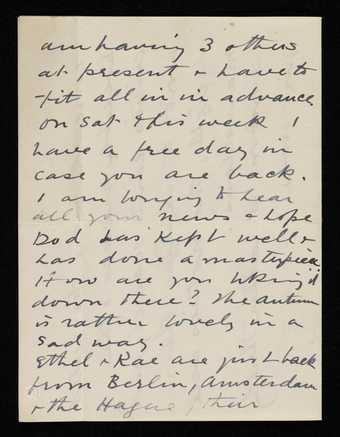 am having 3 others
at present + have to
fit all in in advance
on Sat this week I
have a free day in
case you are back.
I am longing to hear
all your news + hope
Dod has kept well +
has done a masterpiece
How are you liking it
down there? The autumn
is rather lovely in a
sad way.
Ethel + Rae are just back
from Berlin, Amsterdam
+ the Hague, their